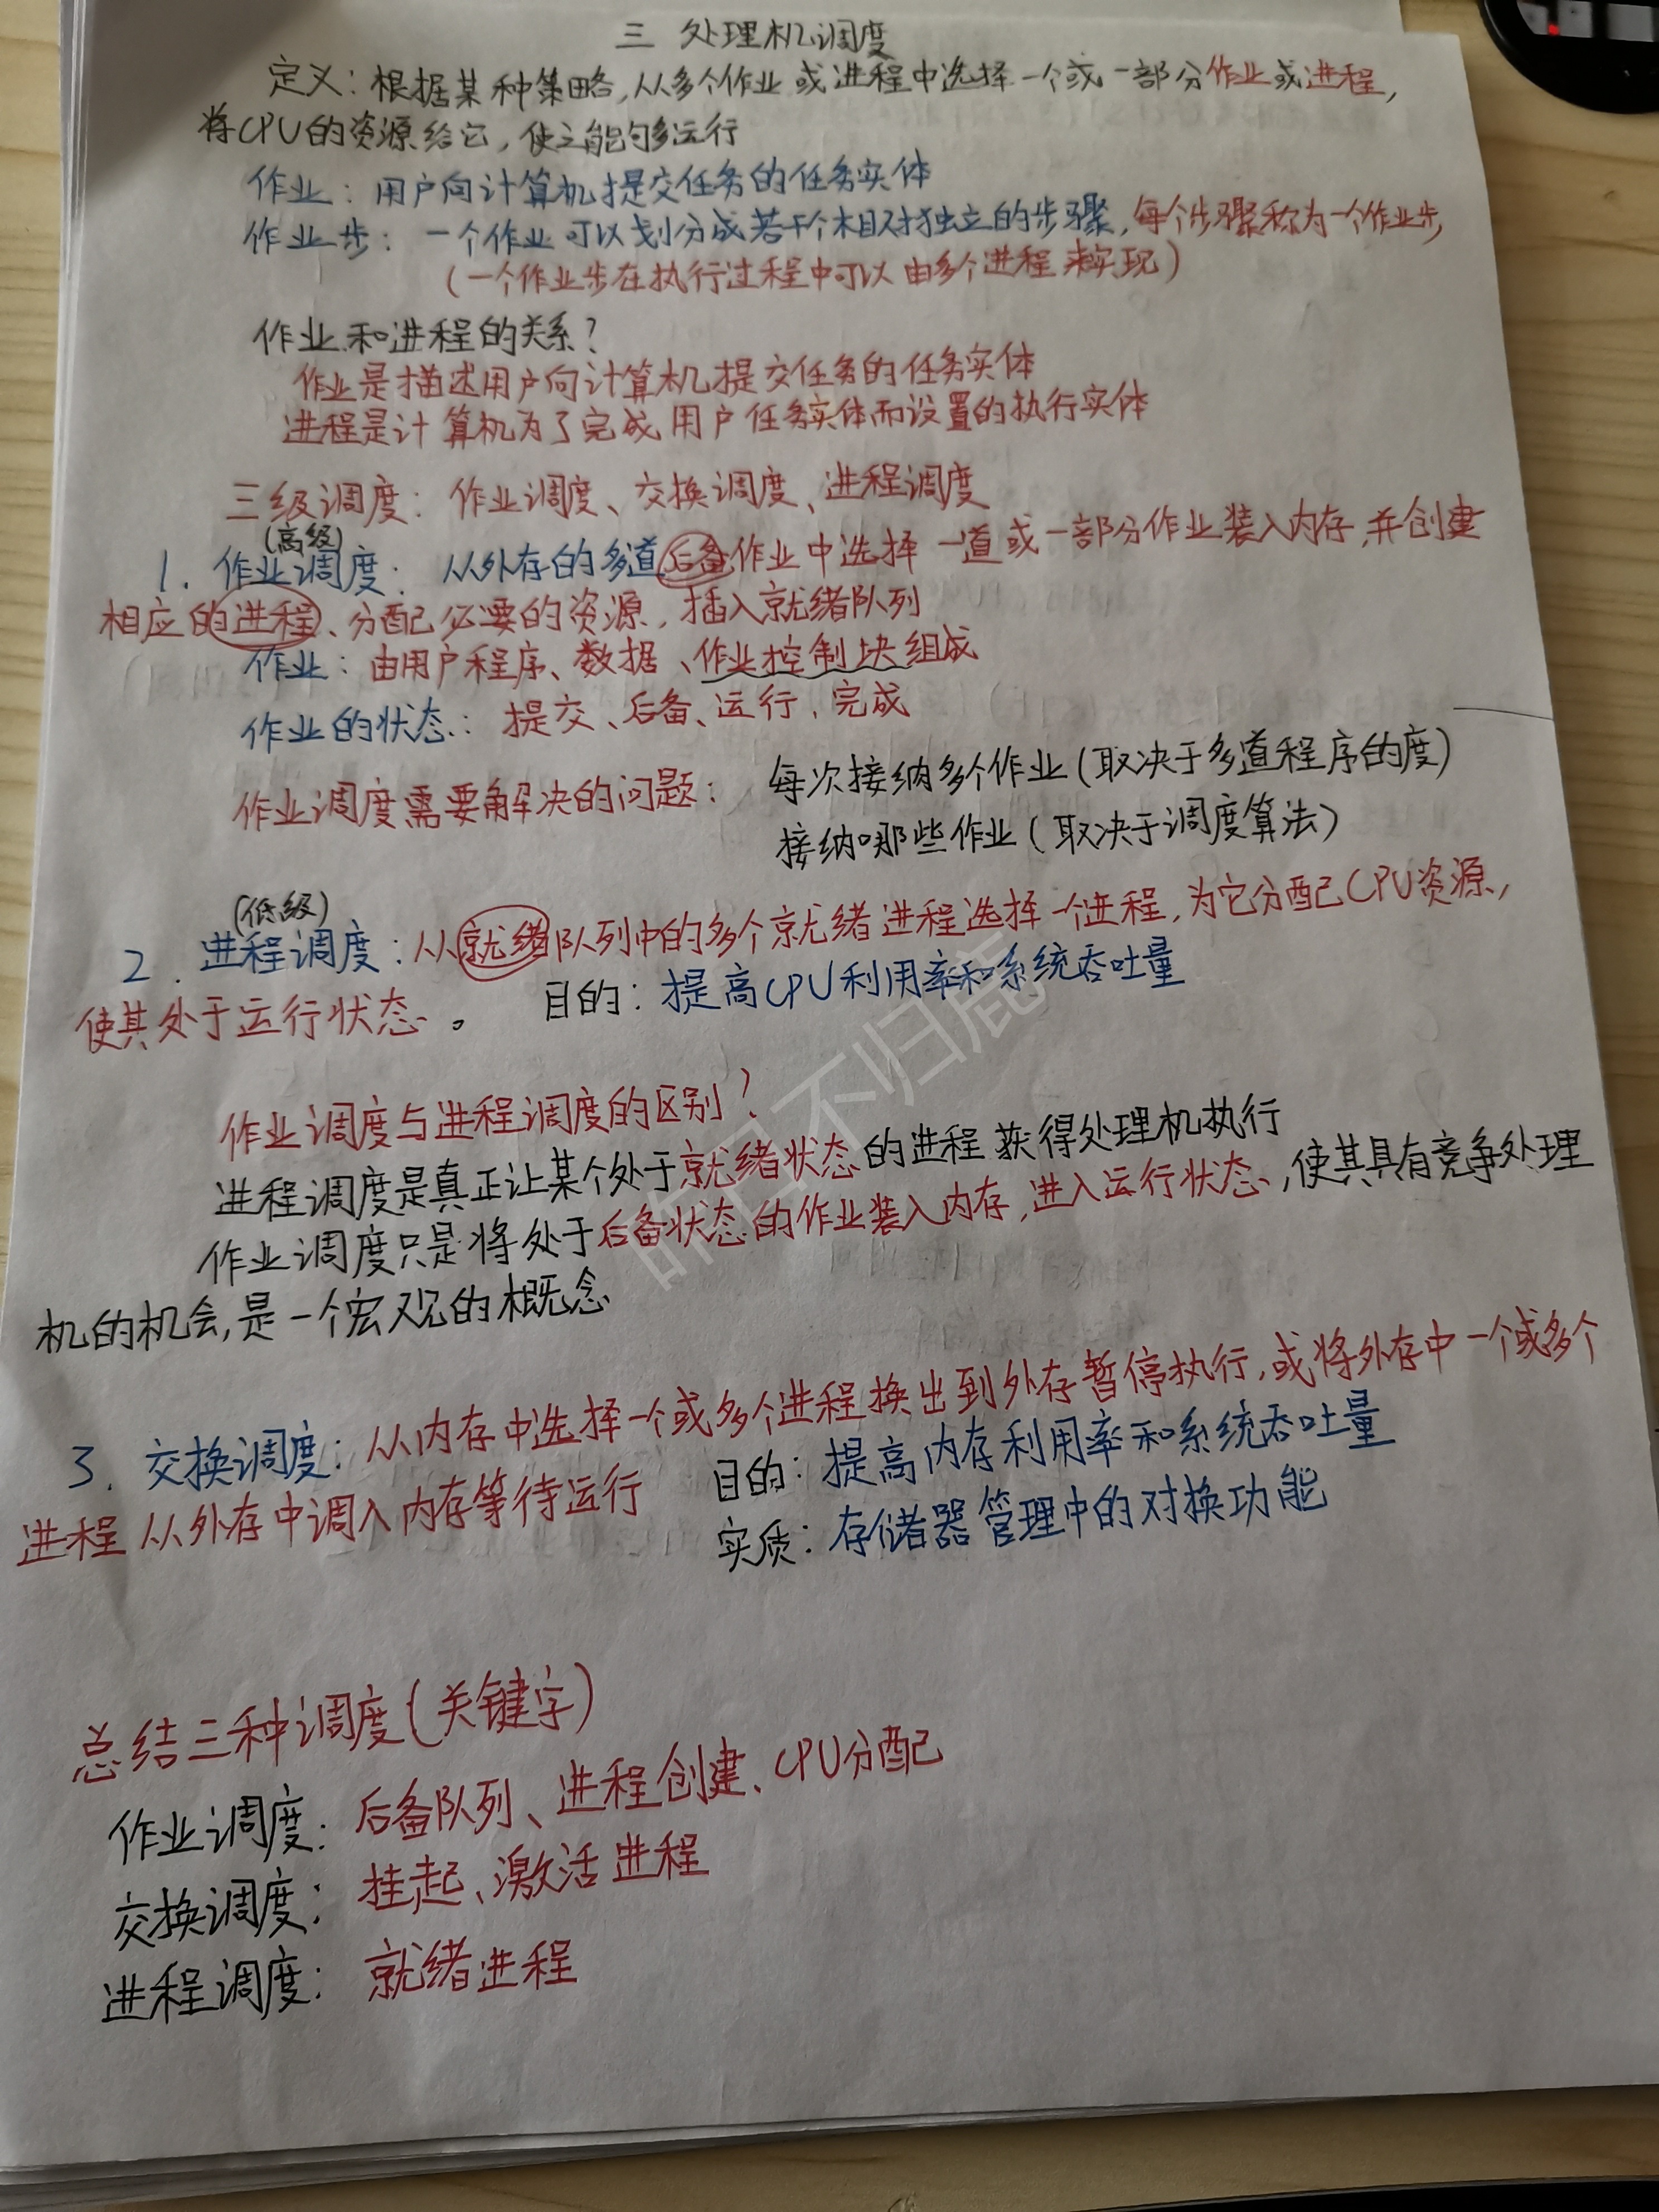 三 处理机调度
定义：根据某种策略，从多个作业或进程中选择一个或一部分作业或进程，
将CPU的资源给它，使之能够多运行
作业：用户向计算机提交任务的任务实体
作业步：一个作业可以划分成若干个相对独立的步骤，每个步骤称为一个作业步，
（一个作业步在执行过程中可以由多个进程来实现）
作业和进程的关系？
作业是描述用户向计算机提交任务的任务实体
进程是计算机为了完成用户任务实体而设置的执行实体
三级调度：作业调度、交换调度、进程调度
（高级）
1. 作业调度：从外存的多道后备作业中选择一道或一部分作业装入内存，并创建
相应的进程、分配必要的资源，插入就绪队列
作业：由用户程序、数据、作业控制块组成
作业的状态：提交、后备、运行、完成
作业调度需要解决的问题：每次接纳多个作业（取决于多道程序的度）
接纳哪些作业（取决于调度算法）
（低级）
2. 进程调度：从就绪队列中的多个就绪进程选择一个进程，为它分配CPU资源，
使其处于运行状态。 目的：提高CPU利用率和系统吞吐量
作业调度与进程调度的区别？
进程调度是真正让某个处于就绪状态的进程获得处理机执行
作业调度只是将处于后备状态的作业装入内存，进入运行状态，使其具有竞争处理
机的机会，是一个宏观的概念
3. 交换调度：从内存中选择一个或多个进程换出到外存暂停执行，或将外存中一个或多个
进程从外存中调入内存等待运行 目的：提高内存利用率和系统吞吐量
实质：存储器管理中的对换功能
总结三种调度（关键字）
作业调度：后备队列、进程创建、CPU分配
交换调度：挂起、激活进程
进程调度：就绪进程
昨日不归鹿